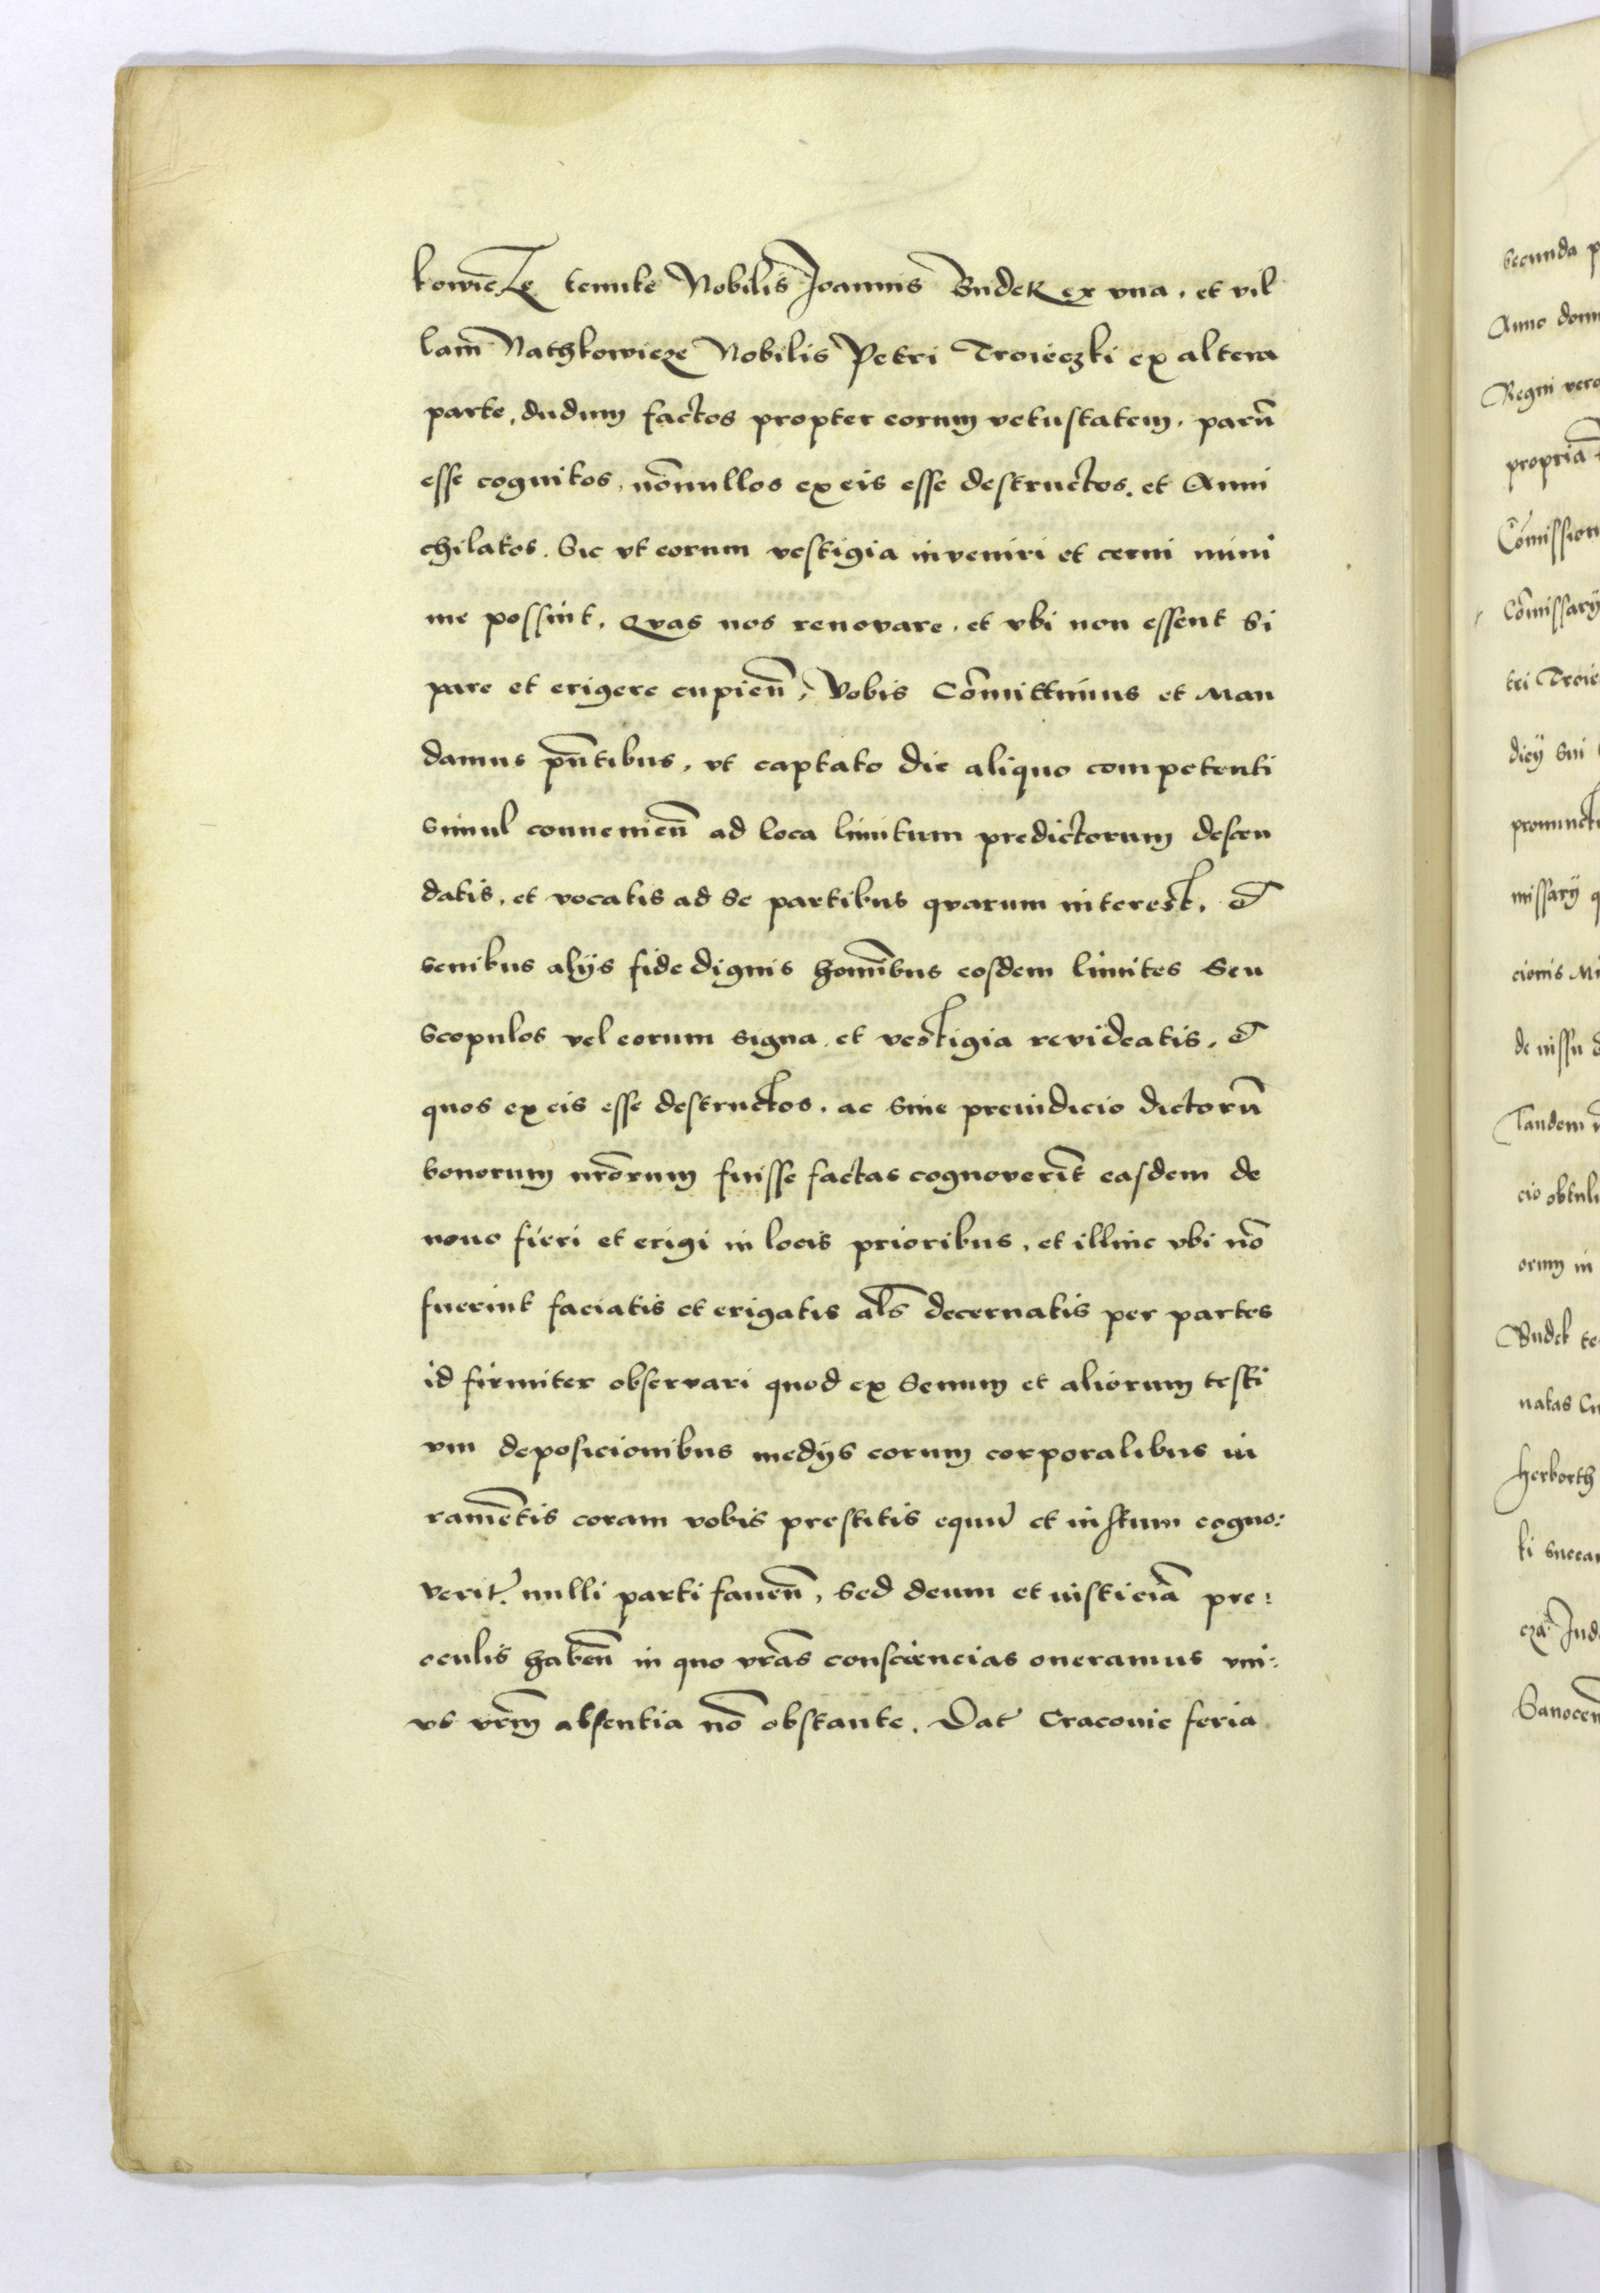 kowicze tenute Nobilis Joannis Budek ex vna, et vil
lam̄ Nathkowicze Nobilis Petri Troieczki ex altera
parte, dudum factos propter eorum vetustatem, parū
esse cognitos, nōnullos ex eis esse destructos, et Anni
chilatos. Sic vt eorum vestigia inveniri et cerni mini
me possint. Qvas nos renovare, et vbi non essent Si
pare et erigere cupien̄, Vobis Cōmittimus et Man
damus pn̄tibus, vt captato die aliquo competenti
simul convenien̄ ad loca limitum predictorum descen
datis, et vocatis ad se partibus qvarum interest, et
senibus alijs fide dignis homībus eosdem limites Seu
Scopulos vel eorum signa et vestigia revideatis, et
quos ex eis esse destructos, ac sine preiudicio dictorū
bonorum nrōrum fuisse factas cognoverīt easdem de
nouo fieri et erigi in locis prioribus, et illinc vbi nō
fuerint faciatis et erigatis als̄ decernatis per partes
id firmiter observari quod ex Senum et aliorum testi
vm deposicionibus medijs eorum corporalibus iu
ramētis coram vobis prestitis equū et iustum cogno:
verit. nulli parti faven̄, sed deum et iusticiā pre:
oculis haben̄ in quo vrās consciencias oneramus vni:
vs vrm̄ absentia nō obstante. Dat Cracovie feria
secunda p
Anno dom
Regni vero
propriā
Cōmission
Cōmissarij
tri Troie
dicij sui
pronuncti
missarij q
cionis
de iussu
Tandem
cio obtuli
orum in
Budek te
natas
Herborth
ki succa
Sanocen̄